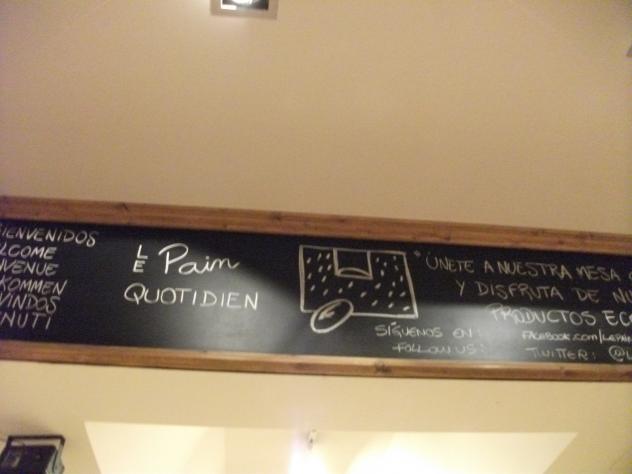 BIENVENIDOS
LCOME
NVENUE
KOMMEN
VINDOS
NUTI
LE Pain
QUOTIDIEN
ÚNETE A NUESTRA MESA
Y DISFRUTA DE NU
PRODUCTOS ECO
SÍGUENOS EN: FACEBOOK.com/LEPAIN
FOLLOW US: TWITTER: @L